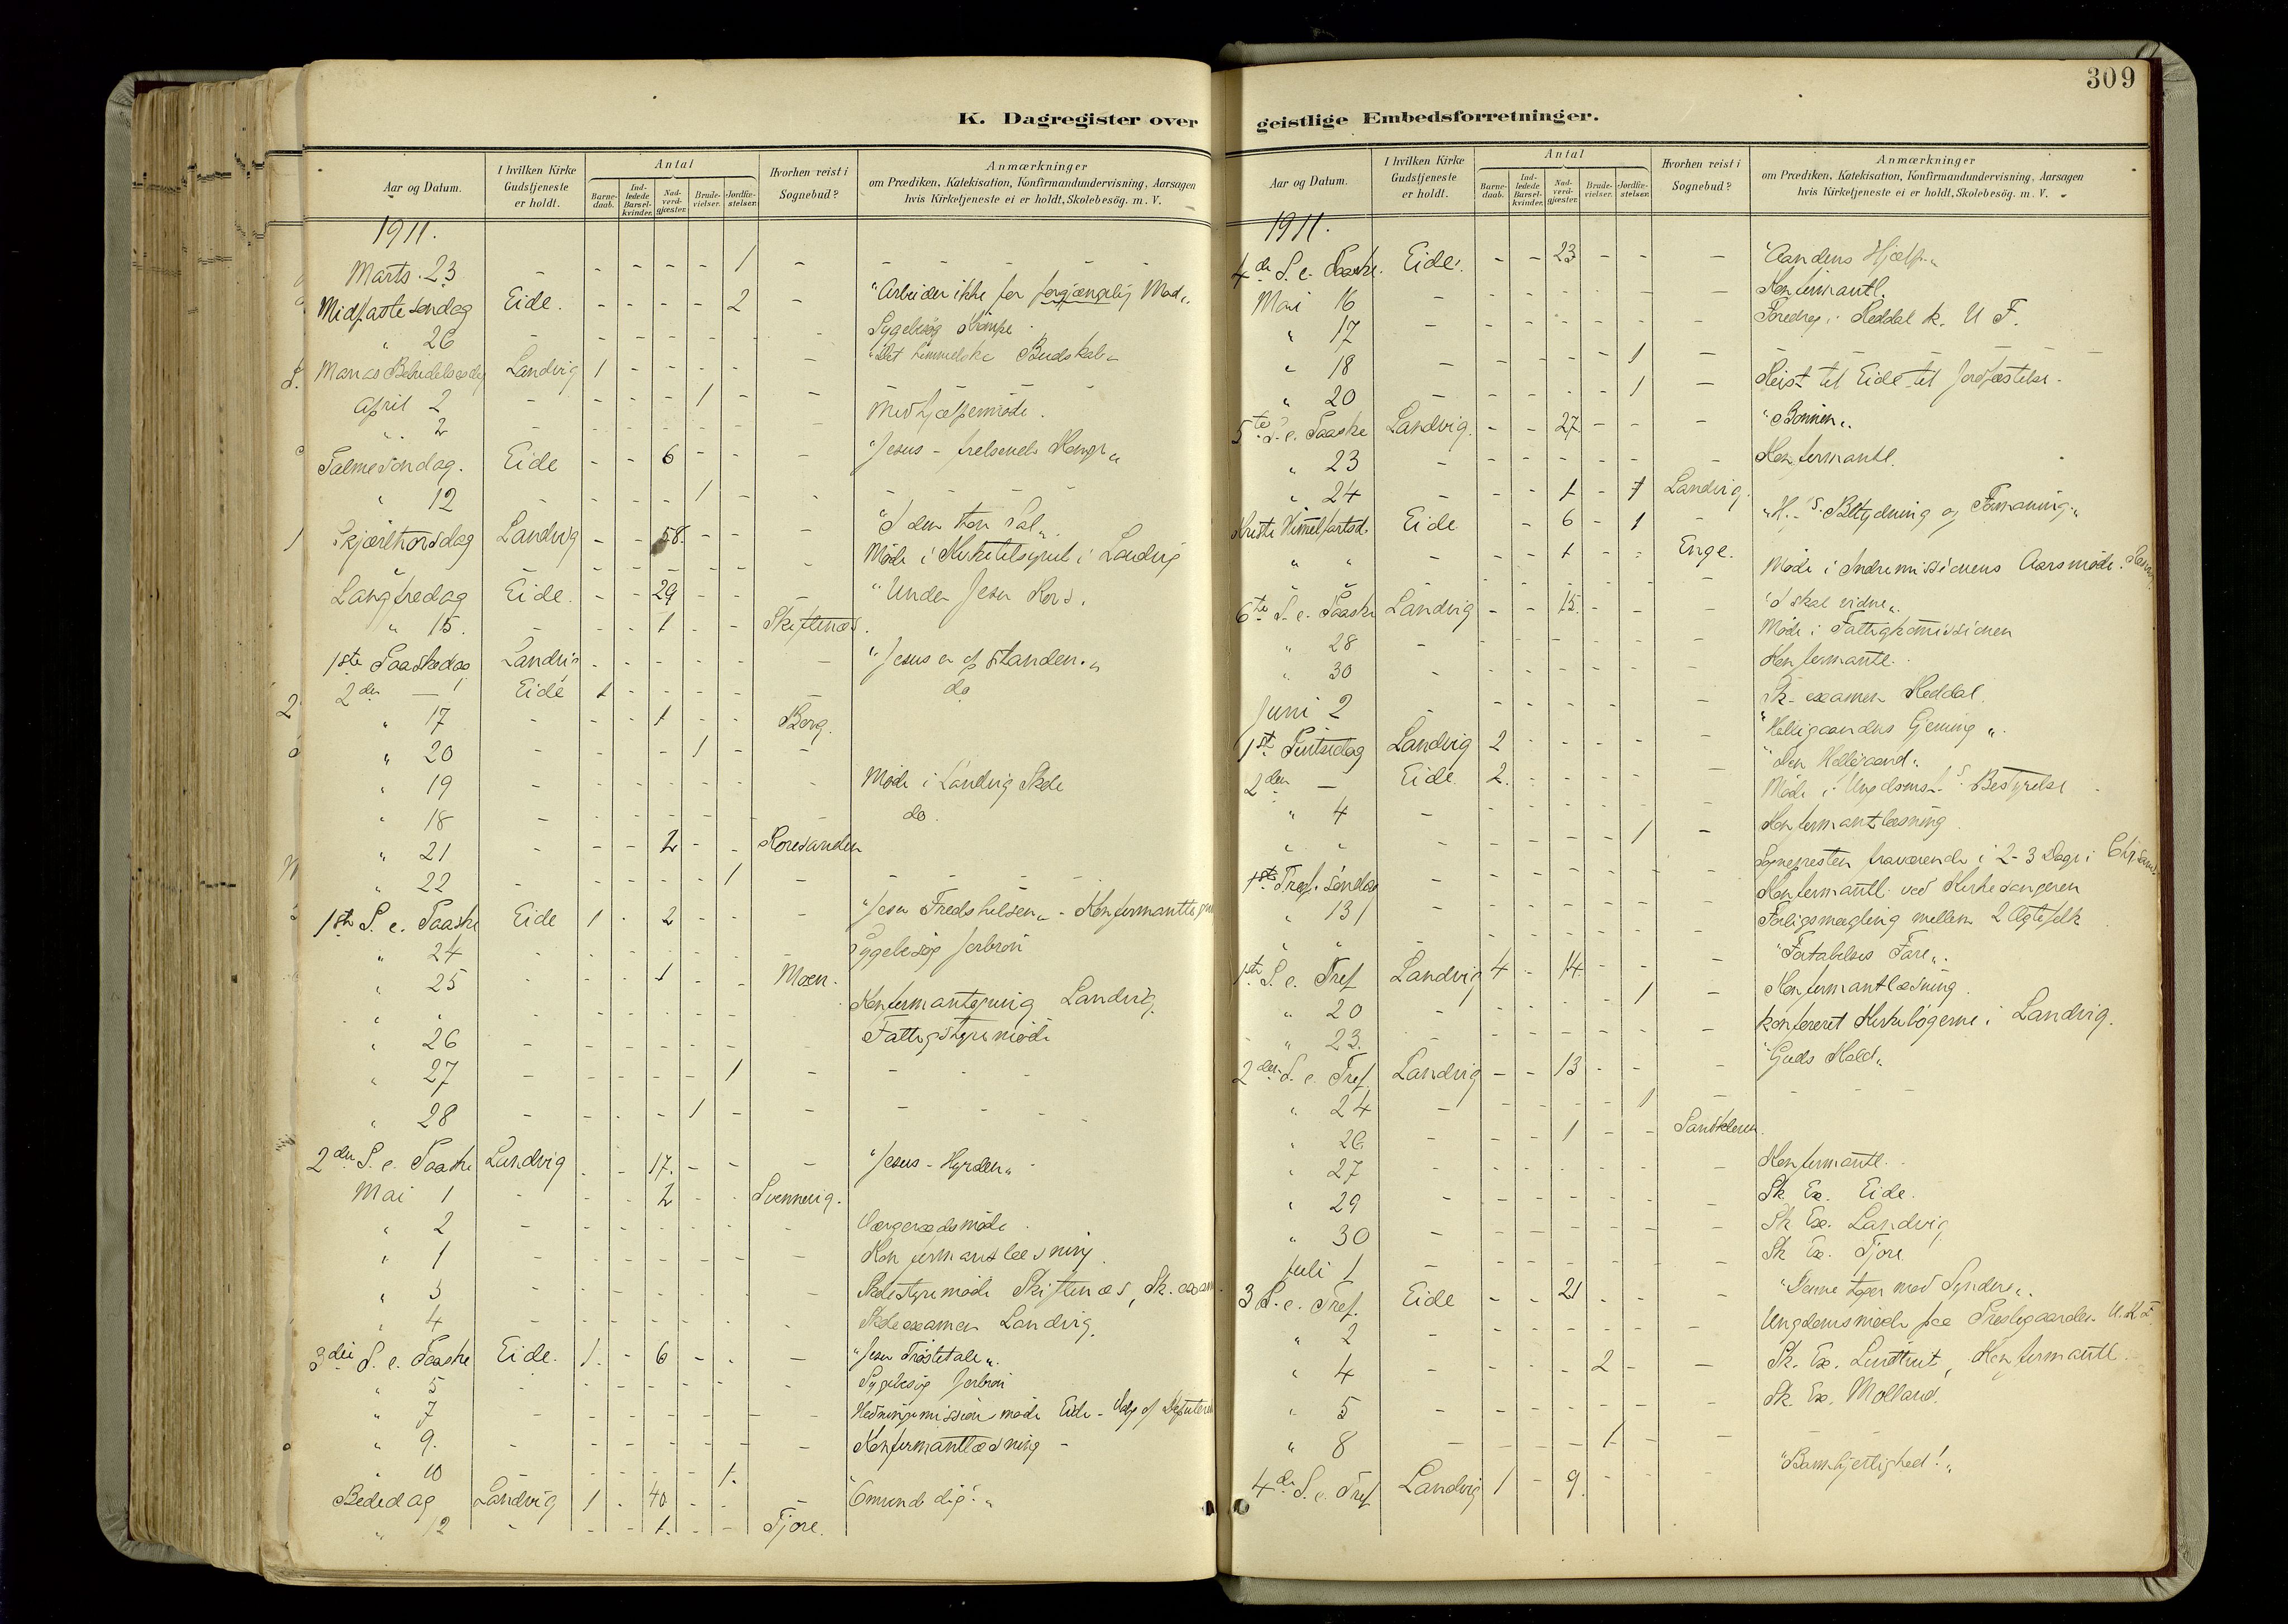 309
K. Dagregister over
Aar og Datum.
I hvilken Kirke Gudstjeneste er holdt.
Antal
Barne-daab.
Ind-ledede Barsel-kvinder.
Nad-verd-gjæster.
Brude-vielser.
Jordfæ-stelser.
Hvorhen reist i Sognebud?
Anmærkninger
om Prædiken, Katekisation, Konfirmandundervisning, Aarsagen
hvis Kirketjeneste ei er holdt, Skolebesög. m. V.
1911.
Marts 23 - - - - - 1 -
Midfastesøndag Eide. - - - - 2 - "Arbeider ikke for forgjængelig Mad"
" 26 - - - - - - Sygebesøg
Marias Bebudelsesdag Landvig 1 - - - - - "Det himmelske Budskab"
April 2 - - - - 1 - -
" 2 - - - - - - - Medhjælpermøde.
Palmesøndag. Eide - - 6 - - - "Jesus - frelsende Konge"
" 12 - - - - 1 - -
Skjærthorsdag Landvig - - 58. - - - "I den stor Sal"
Møde i Kirketilsynet i Landvig
Langfredag Eide. - - 29 - - - "Under Jesu Kors.
" 15. - - - 1 - - Skiftenes.
1ste Paaskedag Landvig - - - - - - "Jesus er opstanden."
2den - Eide 1 - - - - - do
" 17 - - - 1 - - Berg.
" 20 - - - - 1 - -
" 19 - - - - - - - Møde i Landvig Skole
" 18 - - - - - - - do.
" 21 - - - 2 - - Roresanden
" 22 - - - - - 1 -
1ste S. e. Paaske Eide 1 - 2 - - - "Jesu Fredshilsen"
" 24 - - - - - - Sygebesøg
" 25 - - - 1 - - Moen.
" " - - - - - - Landvig.
" 26 - - - - - - Fattigstyremøde
" 27 - - - - - 1 -
" 28 - - - - 1 - -
2den S. e. Paaske Landvig - - 17. - - - "Jesus - Hyrden"
Mai 1 - - - 2 - - Svennevig.
" 2 - - - - - - - Værgeraadsmøde
" 1 - - - - - - - Konfirmantlæsning
" 3 - - - - - - Skolestyremøde Skiftenes, Sk.
" 4 - - - - - - Skoleexamen Landvig.
3die S. e. Paaske Eide. 1. - 6 - - - "Jesu Trøstetale".
" 5 - - - - - - Sygebesøg
" 7 - - - - - - - Hedningemissionsmøde Eide -
" 9. - - - - - - - Konfirmantlæsning -
" 10 - - - - - 1.
Bededag Landvig 1 - 40 - - - "Omvend dig!"
" 12 - - - 1. - - Fjore.
geistlige Embedsforretninger.
Aar og Datum.
I hvilken Kirke Gudstjeneste er holdt.
Antal
Barne-daab.
Ind-ledede Barsel-kvinder.
Nad-verd-gjæster.
Brude-vielser.
Jordfæ-stelser.
Hvorhen reist i Sognebud?
Anmærkninger
om Prædiken, Katekisation, Konfirmandundervisning, Aarsagen
hvis Kirketjeneste ei er holdt, Skolebesög. m. V.
1911.
4de S. e. Paaske. Eide. - - 23 - - - "Aandens Hjælp"
Mai 16 - - - - - - - Konfirmantl.
" 17 - - - - - - - Foredrag i Reddal k. U F.
" 18 - - - - - 1 -
" 20 - - - - - 1 - Reist til Eide til Jordfæstelse.
5te S. e. Paaske Landvig. - - 27 - - - "Bønnen".
" 23 - - - - - - - Konfirmantl.
" 24 - - - 1 - 1 Landvig.
Kristi Himmelfartsd. Eide - 6 - 1 - Betydning og Formaning."
" " - - - 1 - - Enge.
Møde i Indremissionens Aarsmøde.
6te S. e. Paaske Landvig - - 15. - - - "I skal vidne".
" 28 - - - - - - - Møde i Fattigkommissionen
" 30 - - - - - - - Konfirmantl.
Juni 2 - - - - - - - Sk. examen Reddal.
1st Pintsedag Landvig 2 - - - - - "Helligaandens Gjerning".
2den - Eide. 2. - - - - - "Den Helligaand".
" 4 - - - - - - - Møde i Bestyrelse
" " - - - - - 1 - Konfirmantlæsning
1ste Tref. Søndag - - - - - - - Sognepresten fraværende i 2-3 Dage i
" 13 - - - - - - - Konfirmantl. ved Kirkesangeren
" " Forligsmægling mellem 2 Ægtefolk
1ste S. e. Tref Landvig 4 - 14 - - - "Fortabelses Fare".
" 20 - - - - - 1 - Konfirmantlæsning.
" 23. - - - - - - - konfereret Kirkebøgerne i Landvig.
2den S. e. Tref. Landvig - - 13 - - - "Guds Kald"
" 24 - - - - - 1 -
" 26 - - - 1 - -
" 27 - - - - - - - Konfirmantl.
" 29 - - - - - - - Sk. Ex. Eide.
" 30 - - - - - - - Sk Ex. Landvig
Juli 1 - - - - - - - Sk Ex. Fjore
3 S. e. Tref. Eide - - 21 - - - "Denne tager mod Syndere".
" 2 - - - - - - - Ungdomsmøde paa Prestegaarden. U.K.F.
" 4 - - - - 2 - - Sk. Ex. Lundtveit, Konfirmantl.
" 5 - - - - - - - Sk Ex. Molland.
" 8 - - - - 1 - -
4de S. e. Tref Landvig 1 - 9. - - - "Barmhjertighed!"